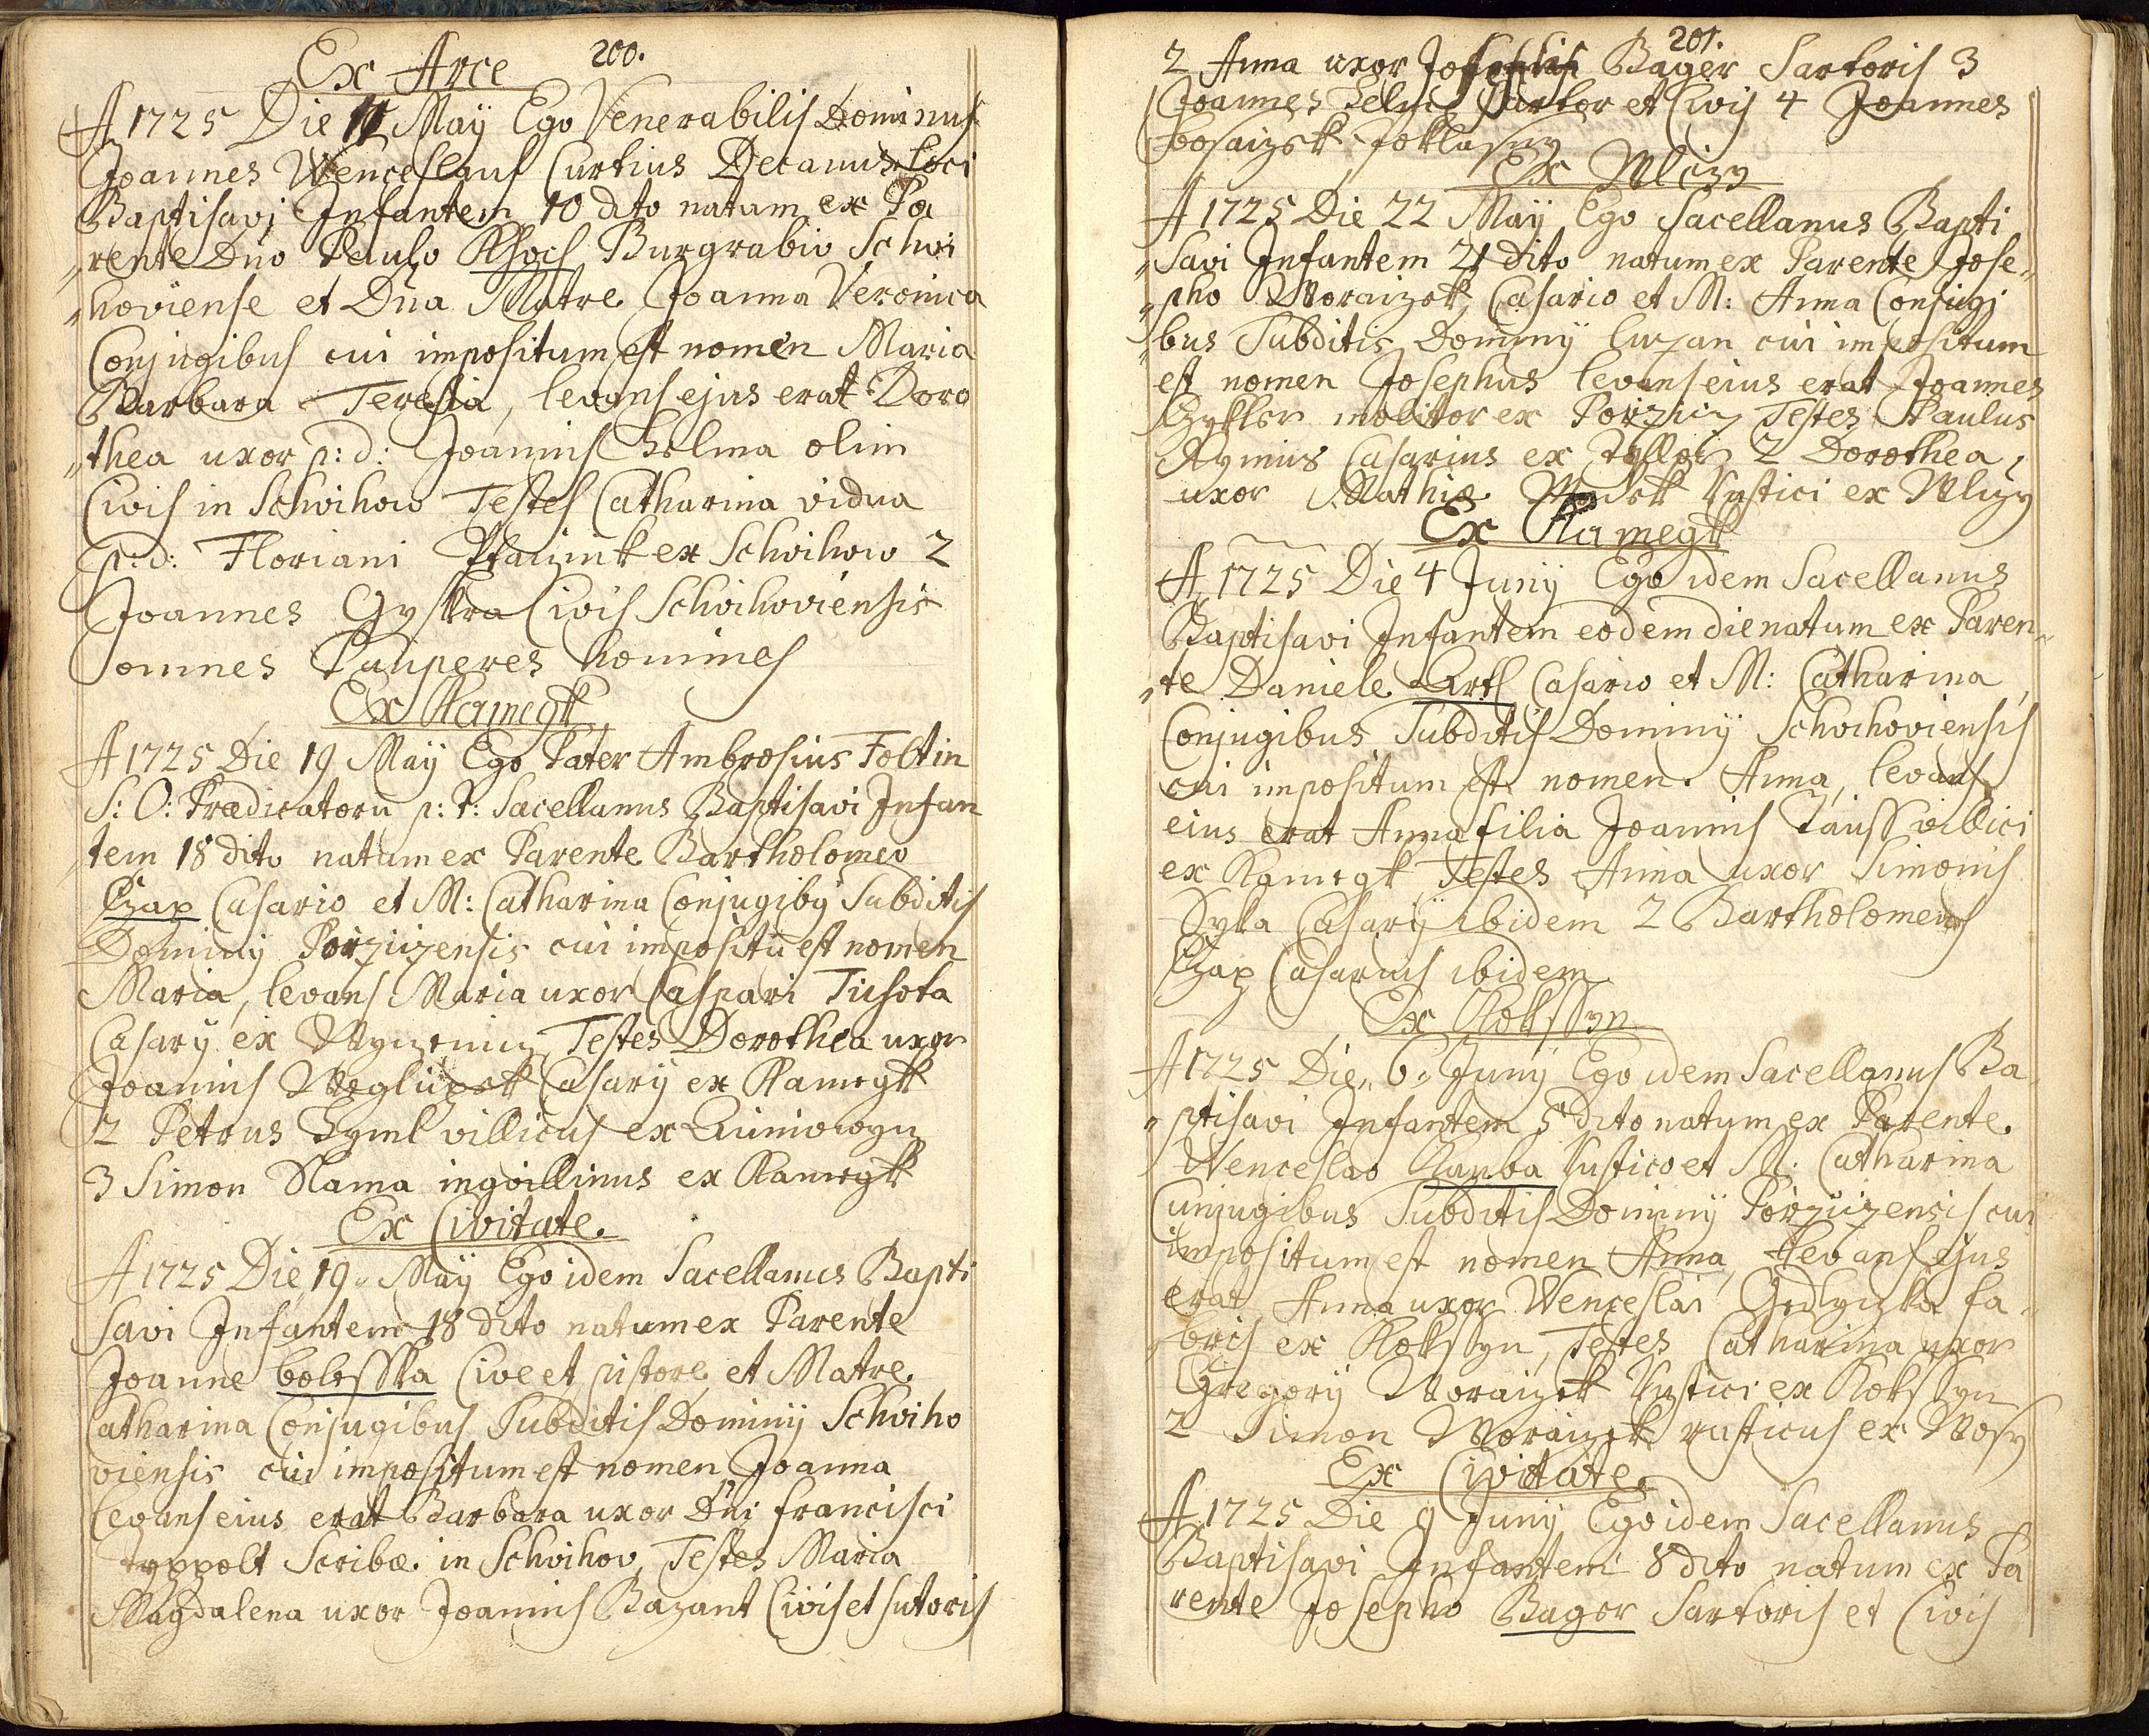 200.
Ex Arce
A 1725 Die 11 Maÿ Ego Venerabilis Dominus
Joannes Wenceslaus Curtius Decanus Loci
Baptisavi Infantem 10 dito natum ex Pa
„rente Dno Paulo Khoch Burgrabio Schwi
„hoviense et Dna Matre Joanna Veronica
Conjugibus cui impositum est nomen Maria
Barbara Teresia, levans ejus erat Doro
„thea uxor p: d: Joannis Chelma olim
Civis in Schwihow Testes Catharina vidua
p: d: Floriani ex Schwihow 2
Joannes Gyskra Civis Schwihoviensis
omnes Pauperes homines
Ex Kamegk
A 1725 Die 19 Maÿ Ego Pater Ambrosius Foltin
S: O: Prædicatoru p: t: Sacellanus Baptisavi Infan
tem 18 dito natum ex Parente Bartholomeo
Czap Casario et M: Catharina Conjugiby Subditis
Dominij Porziczensis cui impositu est nomen
Maria, levans Maria uxor Caspari Tichota
Casarÿ ex Testes Dorothea uxor
Joannis Casarÿ ex Kamegk
2 Petrus villicus ex
3 Simon Slama inquillinus ex Kamegk
Ex Civitate.
A 1725 Die 19 Maÿ Ego idem Sacellanus Bapti
savi Infantem 18 dito natum ex Parente
Joanne bolesska Cive et pistore et Matre
Catharina Conjugibus Subditis Dominij Schwiho
viensis cui impositum est nomen Joanna
levans eius erat Barbara uxor Dni francisci
typpolt Scribæ in Schwihov, Testes Maria
Magdalena uxor Joannis Bazant Civis et sutoris
201.
2 Anna uxor Josephi Bager Sartoris 3
Joannes Chelma Sartor et Civis 4 Joannes
Ex Wlczy
A 1725 Die 22 Maÿ Ego Sacellanus Bapti
„savi Infantem 21 dito natum ex Parente Jose„
„pho Woraczek Casario et M: Anna Conjugi
bus Subditis Dominÿ cui impositum
est nomen Josephus levans eius erat Joannes
molitor ex Porzicz Testes Paulus
Casarius ex 2 Dorothea
uxor Mathiæ Rustici ex Wlczy
Ex Kamegk
A 1725 Die 4 Junÿ Ego idem Sacellanus
Baptisavi Infantem eodem die natum ex Paren„
„te Daniele Artl Casario et M: Catharina
Conjugibus Subditis Dominÿ Schwihoviensis
cui impositum est nomen Anna, levans
eius erat Anna filia Joannis Tauss villici
ex Kamegk Testes Anna uxor Simonis
Syka Casarÿ ibidem 2 Bartholomeus
Czap Casarius ibidem
Ex Kokssyn
A 1725 Die „6„ Junÿ Ego idem Sacellanus Ba„
„ptisavi Infantem 5 dito natum ex Parente
Wenceslao Kauba Rustico et M: Catharina
Cunjugibus Subditis Dominÿ Porziczensis cui
impositum est nomen Anna, levans ejus
erat Anna uxor Wenceslai Gedlyczka fa„
„bris ex Kokssyn, Testes Catharina uxor
Gregorÿ Woraczek Rustici ex Kokssyn
2 Simon Woraczek rusticus ex Wosy
Ex Civitate.
A 1725 Die 9 Junÿ Ego idem Sacellanus
Baptisavi Infantem 8 dito natum ex Pa
rente Josepho Bager Sartoris et Civis